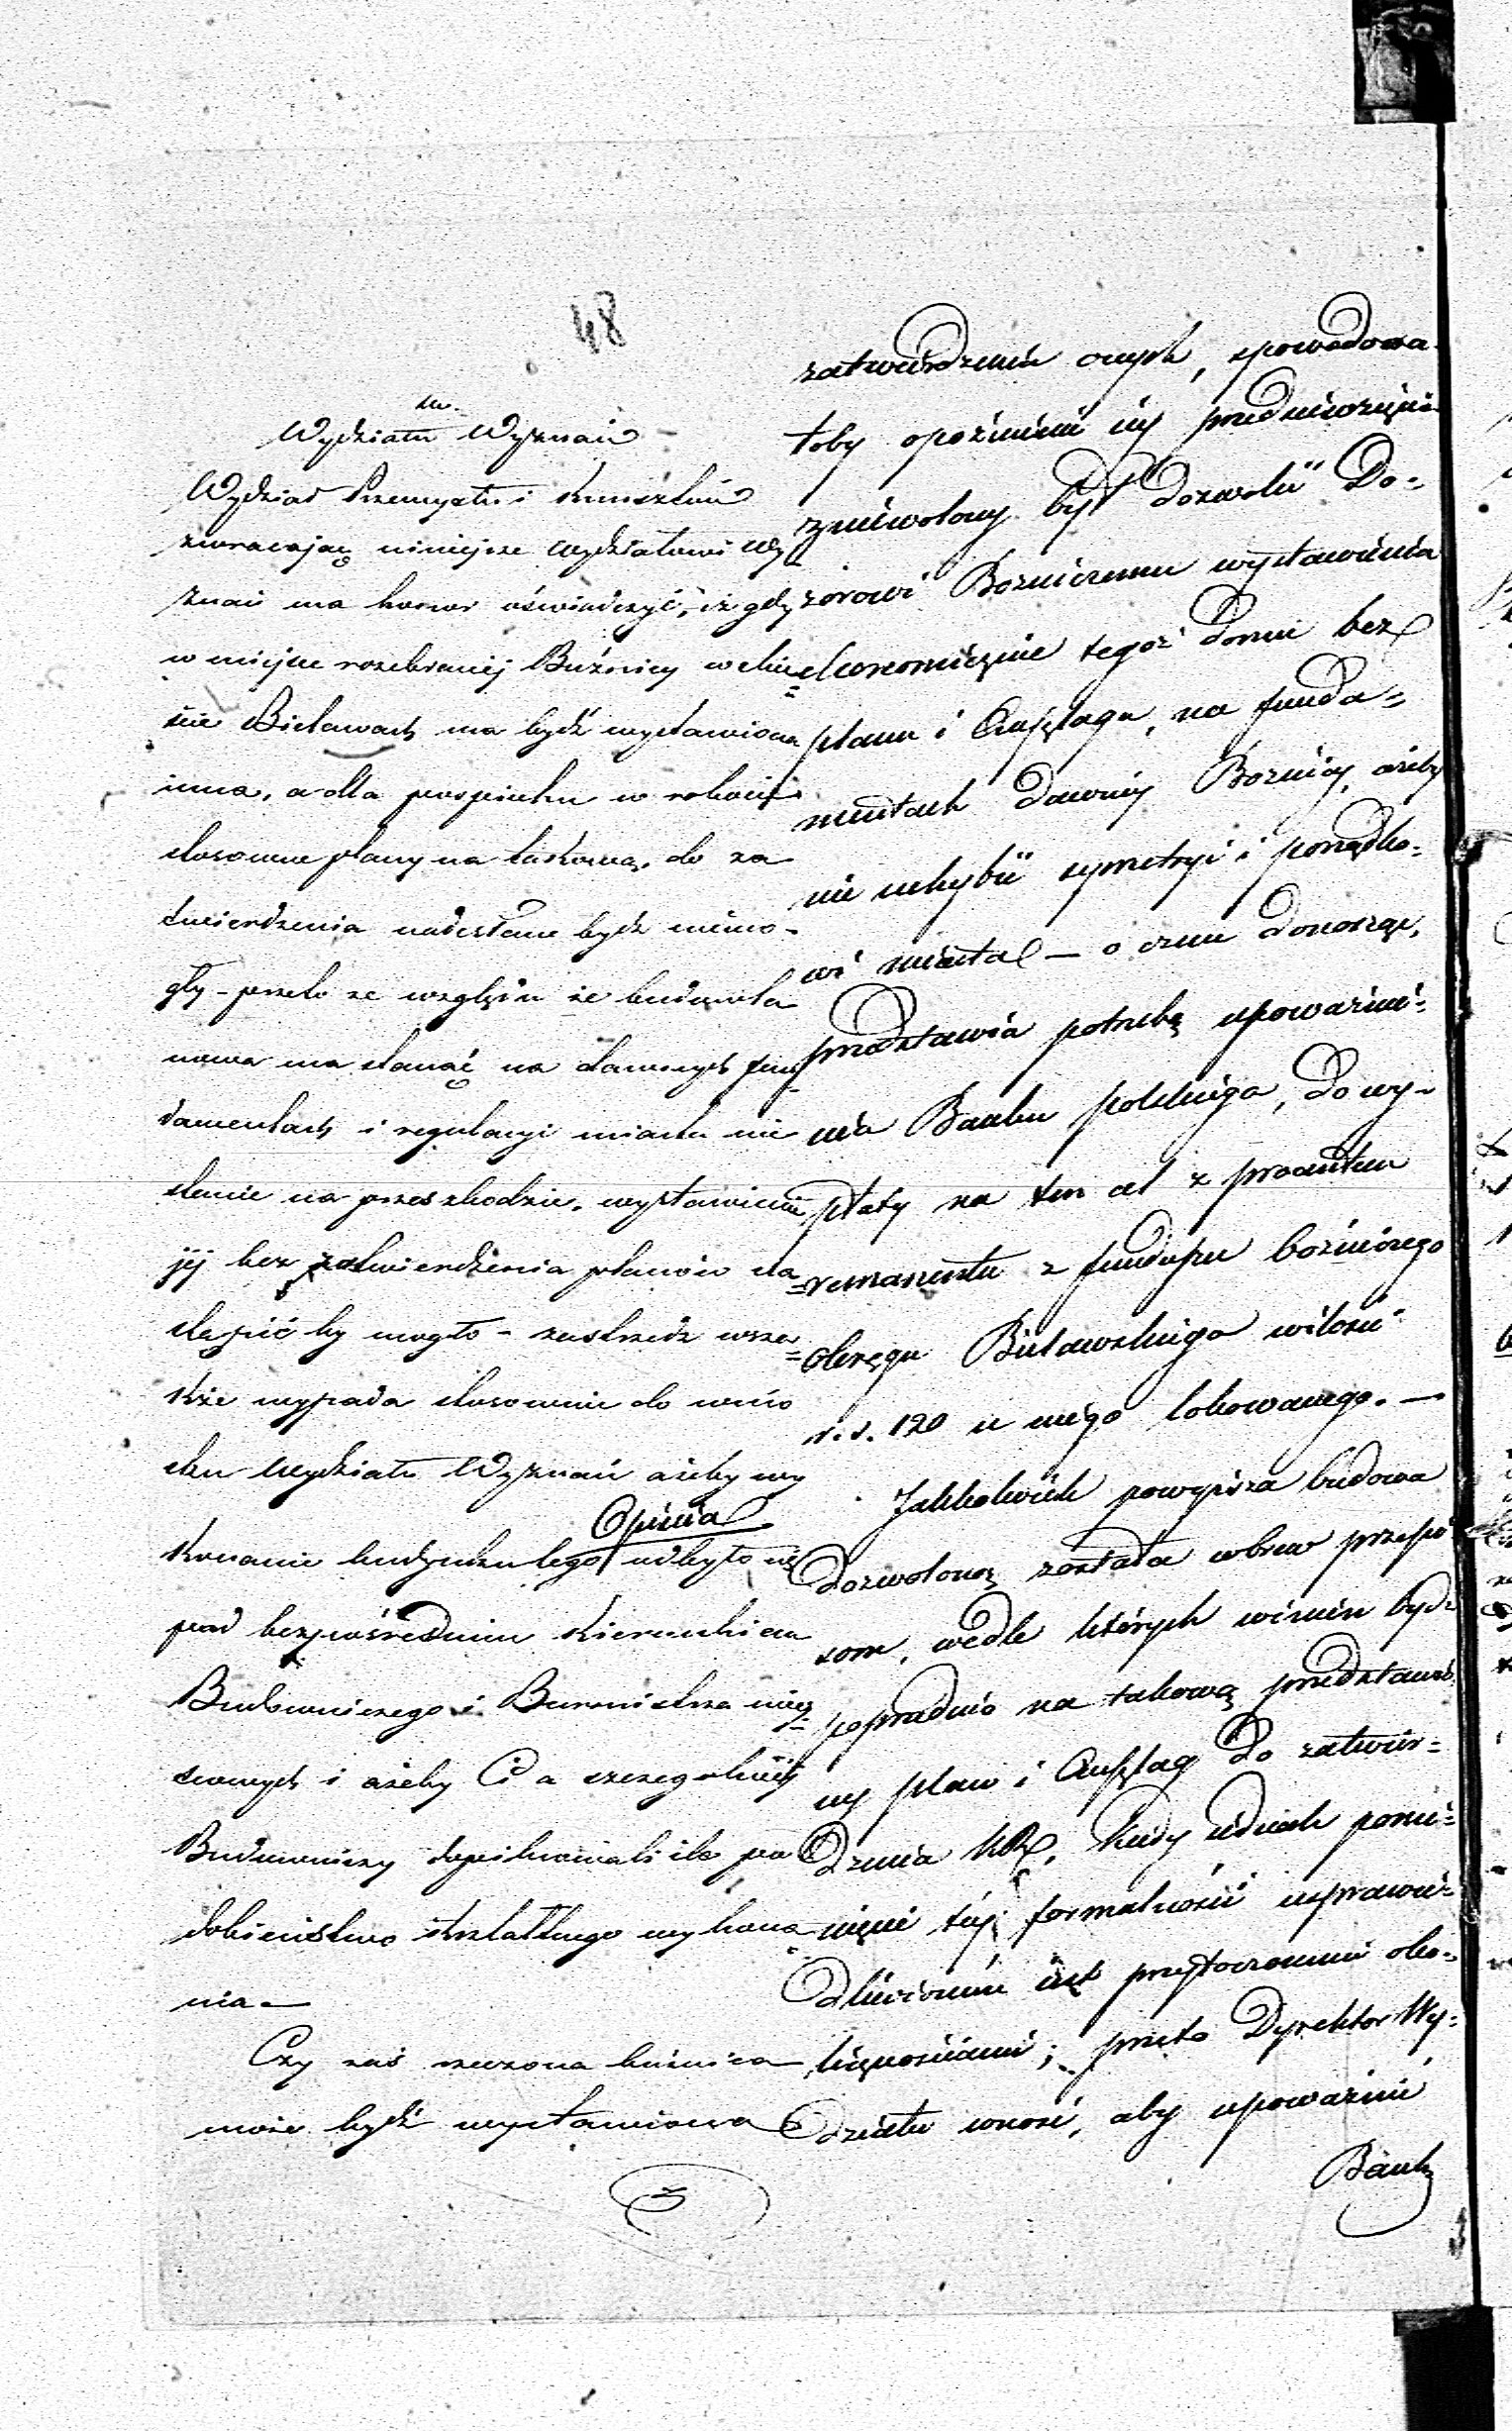 48
Wydziału Wyznań
Wydział Przemysłu i Kunsztów
zwracając niniejsze wydziałowi Wy
znań ma honor oświadczyć, iż gdy
w miejsce rozebranej Buźnicy w mie
ście Bielawach ma bydź wystawiona
inna, a dla pospiechu w robocie
stosowne plany na takową, do za
twierdzenia nadesłane bydź niemo-
gły - przeto ze względu że budowla
nowa ma stanąć na dawnych fun
damentach i regulacyi miasta nie
stanie na przeszkodzie, wystawienie
jej bez zatwierdzenia planów na
stąpić by mogło - zastrzedz wsza
kże wypada stosownie do wnio
sku Wydziału Wyznań ażeby wy
Opinia
konanie budynku tego odbyło się
pod bezpośrednim kierunkiem
Budowniczego i Burmistrza miej
scowych i ażeby Ci a szczególniej
Budowniczy dopilnowali ile po
dobieństwo kształtnego wykona
nia —
Czy zaś rzeczona buźnica
może bydź wystawiona
zatwierdzenie onych, spowodowa-
łoby opóźnienie w przedsięwzięciu
zniewolony był dozwolić Do-
zorowi Bożniczemu wystawienia
ekonomicznie tegoż domu bez
planu i Anszlagu, na funda=
mentach dawnej Bożnicy, ażeby
nie uchybić symetryi i porządko-
wi miasta — o czem donosząc,
przedstawia potrzebę upoważnie=
nia Banku polskiego, do wy-
płaty na ten cel z procentem
remanentu z funduszu bożniczego
Okręgu Bielawskiego w ilości
r.s. 120 u niego lokowanego. —
Jakkolwiek powyższa budowa
dozwoloną została wbrew przepi
som, wedle których winien być
poprzednio na takową przedstawio
ny plan i Anszlag do zatwier=
dzenia KR, kiedy jednak pomi=
nięcie tej formalności usprawie=
dliwionem jest przytoczonemi oko-
licznościami; przeto Dyrektor Wy=
działu wnosi, aby upoważnić
Bank